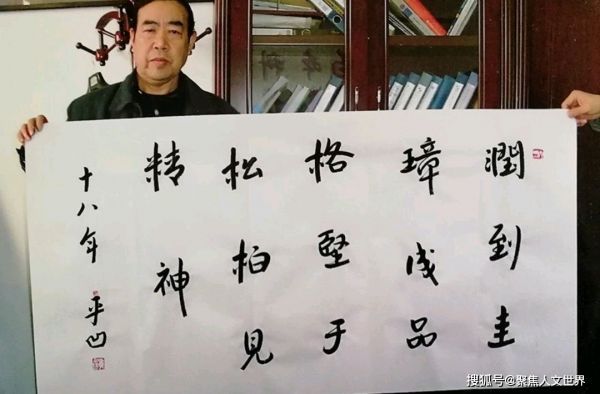 潤到圭
璋成品
格堅于
松柏見
精神
十八年 平凹
搜狐号@聚焦人文世界